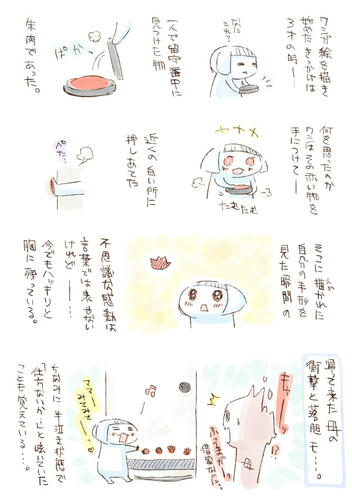 ワシが絵を描き
始めたきっかけは
3才の時―…
なに
これ?
一人で留守番中に
見つけた物
ぱかっ
朱肉であった。
何を思ったのか
ワシはその赤い物を
手につけて―…
たむたむ
近くの白い所に
押しあてた
ぺた…
そこに描かれた
自分の手形を
見た瞬間の
不思議な感動は
言葉では表せない
けれど―…
今でもハッキリと
胸に残っている。
帰って来た母の
衝撃と落胆も…。
ママー
みてみてー
ちなみに半泣き状態で
「仕方ないか…」と呟いていた
ことも覚えている…。